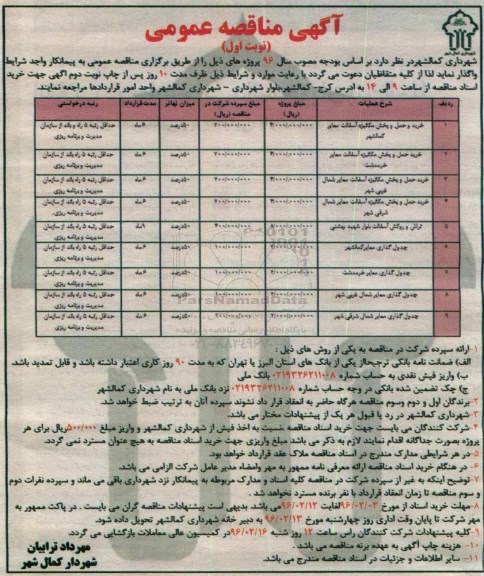 آگهی مناقصه عمومی
(نوبت اول)
شهرداری کمال شهر
شهرداری کمالشهر در نظر دارد بر اساس بودجه مصوب سال ۹۶ پروژه های ذیل را از طریق برگزاری مناقصه عمومی به پیمانکار واجد شرایط
واگذار نماید لذا از کلیه متقاضیان دعوت می گردد با رعایت موارد و شرایط ذیل ظرف مدت ۱۰ روز پس از چاپ نوبت دوم آگهی جهت خرید
اسناد مناقصه از ساعت ۹ الی ۱۴ به ادرس کرج- کمالشهر بلوار شهرداری - شهرداری کمالشهر واحد امور قراردادها مراجعه نمایند.
ردیف شرح عملیات مبلغ پروژه (ریال) مبلغ سپرده شرکت در مناقصه (ریال) میزان تهاتر مدت قرارداد رتبه درخواستی
۱ خرید و حمل و پخش مکانیزه آسفالت معابر کمالشهر ۵۰درصد ۶ماه حداقل رتبه ۵ راه و باند از سازمان مدیریت و برنامه ریزی
۲ خرید، حمل و پخش مکانیزه آسفالت معابر خرمدشت ۵۰درصد ۶ماه حداقل رتبه ۵ راه باند از سازمان مدیریت و برنامه ریزی
۳ خرید، حمل و پخش مکانیزه آسفالت معابر شمال غربی شهر ۵۰درصد ۶ماه حداقل رتبه ۵ راه باند از سازمان مدیریت و برنامه ریزی
۴ خرید، حمل و پخش مکانیزه آسفالت معابر شمال شرقی شهر ۵۰درصد ۶ماه حداقل رتبه ۵ راه باند از سازمان مدیریت و برنامه ریزی
۵ تراش و روکش آسفالت بلوار شهید بهشتی ۵۰درصد حداقل رتبه ۵ راه باند از سازمان مدیریت و برنامه ریزی
۶ جدول گذاری معابر کمالشهر ۵۰درصد ۶ماه حداقل رتبه ۵ راه باند از سازمان مدیریت و برنامه ریزی
۷ جدول گذاری معابر خرمدشت ۵۰درصد ۶ماه حداقل رتبه ۵ راه باند از سازمان مدیریت و برنامه ریزی
۸ جدول گذاری معابر شمال غربی شهر ۵۰درصد ۶ماه حداقل رتبه ۵ راه باند از سازمان مدیریت و برنامه ریزی
۹ جدول گذاری معابر شمال شرقی شهر ۵۰درصد ۶ماه حداقل رتبه ۵ راه باند از سازمان مدیریت و برنامه ریزی
ParsNamadData
۱-ارائه سپرده شرکت در مناقصه به یکی از روش های ذیل :
الف) ضمانت نامه بانکی ترجیحاً از یکی از بانک های استان البرز یا تهران که به مدت ۹۰ روز کاری اعتبار داشته باشد و قابل تمدید باشد.
ب) واریز فیش نقدی به حساب شماره ۰۲۱۹۳۲۶۲۱۱۰۰۸ بانک ملی
ج) چک تضمین شده بانکی در وجه حساب شماره ۰۲۱۹۳۲۶۲۱۱۰۰۸ نزد بانک ملی به نام شهرداری کمالشهر
۲-برندگان اول و دوم و سوم مناقصه هر گاه حاضر به انعقاد قرار داد نشوند سپرده آنان به ترتیب ضبط خواهد شد.
۳-شهرداری کمالشهر در رد یا قبول هر یک از پیشنهادات مختار می باشد.
۴-شرکت کنندگان می بایست جهت خرید اسناد مناقصه نسبت به اخذ فیش از شهرداری کمالشهر و واریز مبلغ ۵۰۰/۰۰۰ریال برای هر
پروژه بصورت جداگانه اقدام نمایند. لازم به ذکر می باشد مبلغ واریزی جهت خرید اسناد مناقصه به هیچ عنوان مسترد نمی گردد.
۵-در هر شرایطی مدارک مندرج در اسناد مناقصه ملاک عقد قرارداد خواهد بود.
۶- در هنگام خرید اسناد مناقصه ارائه معرفی نامه ممهور به مهر وامضاء مدیر عامل شرکت الزامی می باشد.
۷-توضیح اینکه به غیر از سپرده شرکت در مناقصه کلیه اسناد و مدارک مربوطه به پیمانکار نزد شهرداری باقی می ماند و سپرده نفرات دوم
و سوم مناقصه تا زمان انعقاد قرارداد با نفر برنده مسترد نخواهد شد .
۸-مهلت خرید اسناد از مورخ ۹۶/۰۲/۰۳ لغایت ۹۶/۰۲/۱۲ می باشد. بدیهی است پیشنهادات مناقصه گران می بایست . در پاکت ممهور به
مهر شرکت تا پایان وقت اداری روز چهارشنبه مورخ ۹۶/۰۲/۱۳ به دبیر خانه شهرداری کمالشهر تحویل داده شود.
۹-کلیه پیشنهادات شرکت کنندگان راس ساعت ۱۲ روز شنبه ۹۶/۰۲/۱۶ در کمیسیون عالی معاملات بازگشایی می گردد.
۱۰- هزینه چاپ آگهی به عهده برنه مناقصه می باشد .
۱۱- سایر اطلاعات و جزئیات در اسناد مناقصه مندرج می باشد.
مهرداد ترابیان
شهردار کمال شهر